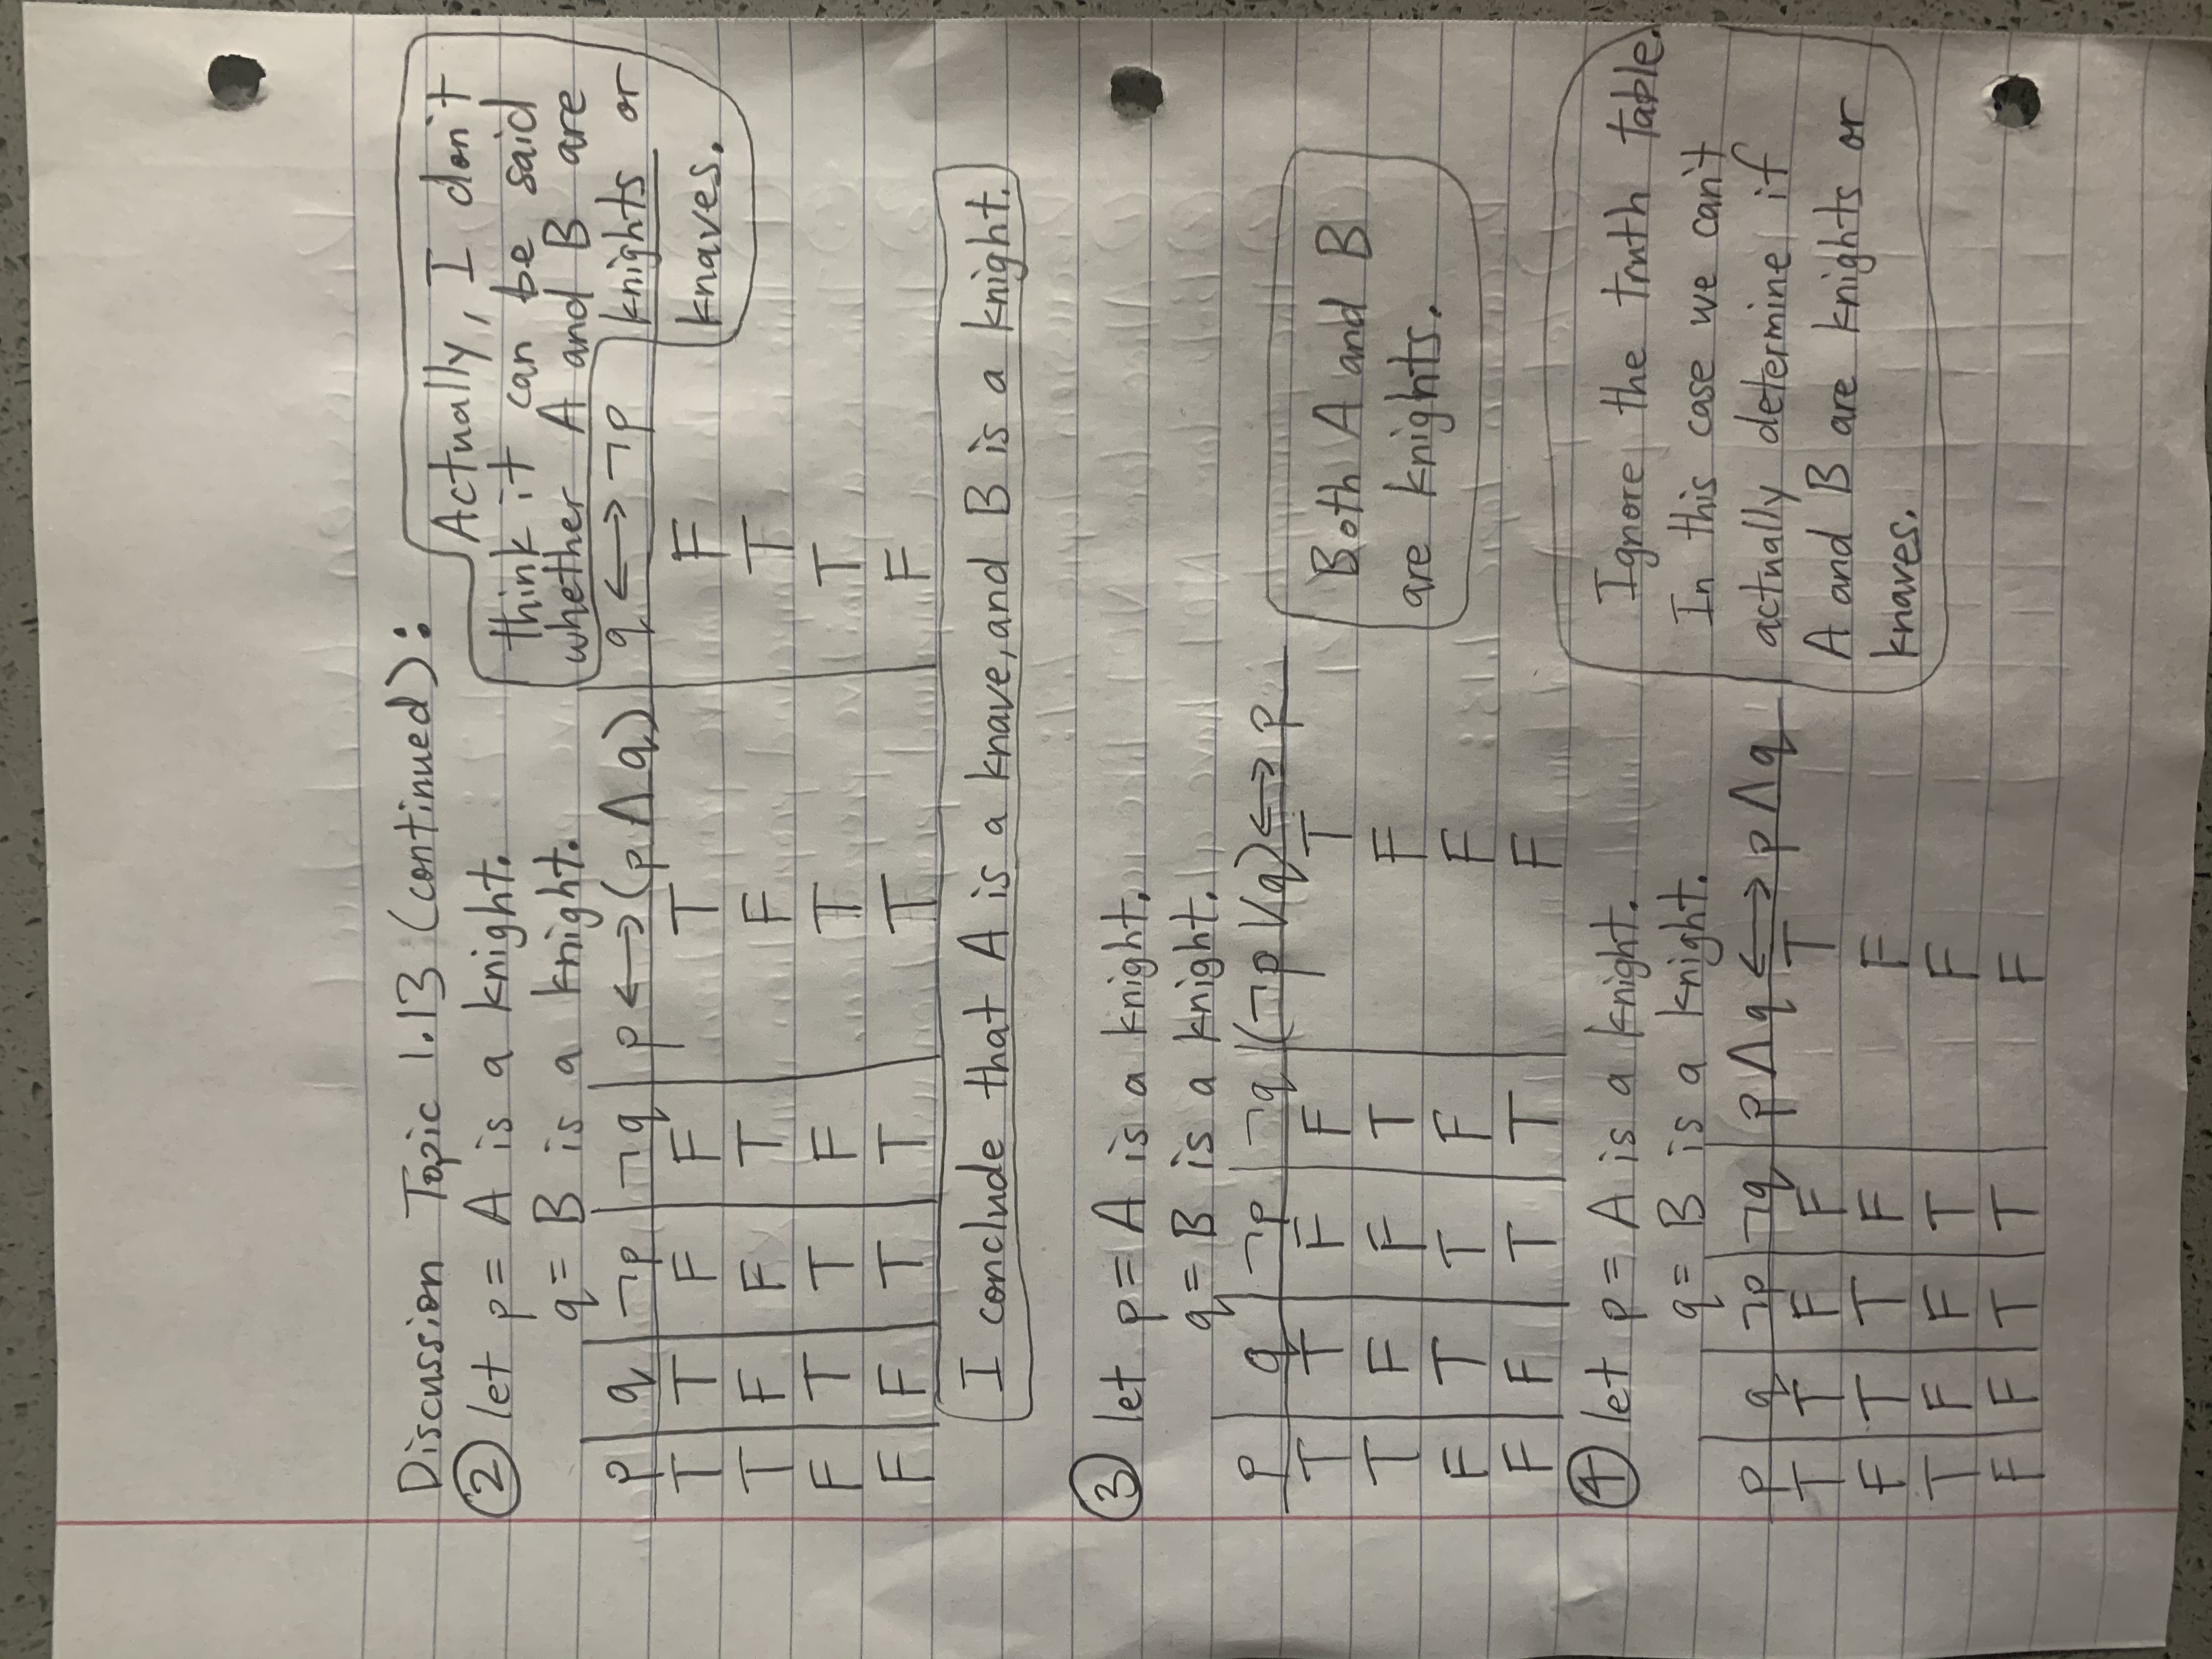 Discussion Topic 1.13 (continued):
② let p = A is a knight.
q = B is a knight.
Actually, I don't
think it can be said
whether A and B are
knights or
knaves.
p q ¬p ¬q p ⟷ (p ∧ q) q ⟷ ¬p
T T F F T F
T F F T F T
F T T F T T
F F T T T F
I conclude that A is a knave, and B is a knight.
③ let p = A is a knight.
q = B is a knight.
p q ¬p ¬q (¬p ∨ q) ⟷ p
T T F F T
T F F T F
F T T F F
F F T T F
Both A and B
are knights.
④ let p = A is a knight.
q = B is a knight.
p q ¬p ¬q p ∧ q ⟷ p ∧ q
T T F F T
F T T F F
T F F T F
F F T T F
Ignore the truth table.
In this case we can't
actually determine if
A and B are knights or
knaves.